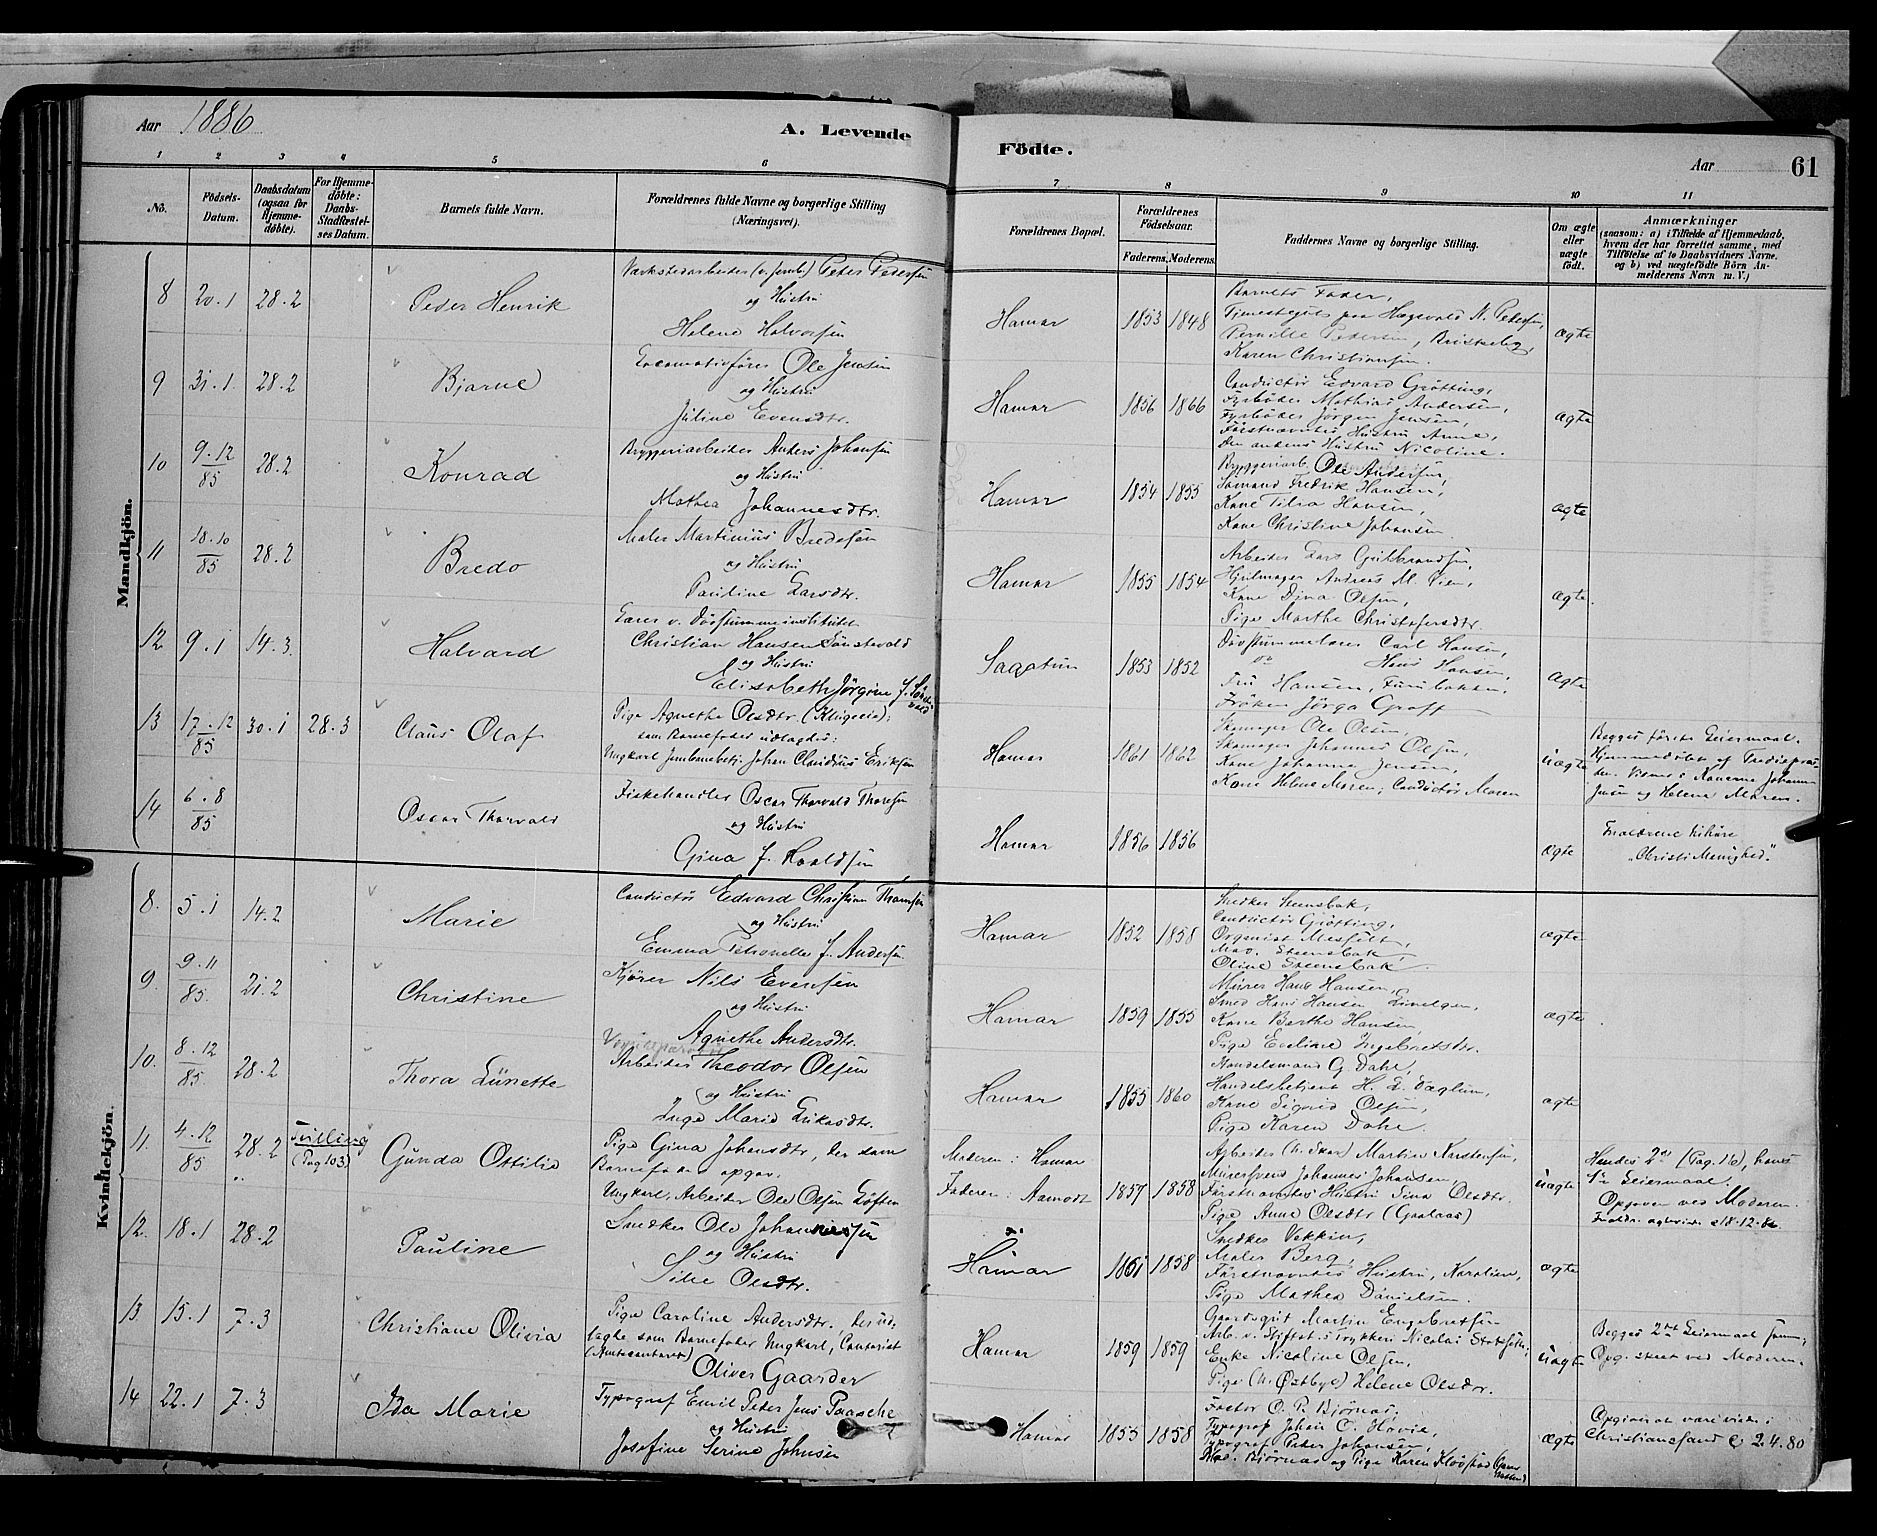 Aar 1886
A. Levende
Födte.
Aar
61
1 2 3 4 5 6 7 8 9 10 11
No.
Födsels-
Datum.
Daabsdatum
(ogsaa for
Hjemme-
döbte).
For Hjemme-
döbte:
Daabs-
Stadfæstel-
ses Datum.
Barnets fulde Navn.
Forældrenes fulde Navne og borgerlige Stilling
(Næringsvei).
Forældrenes Bopæl.
Forældrenes
Födselsaar.
Faderens. Moderens.
Faddernes Navne og borgerlige Stilling.
Om ægte
eller
uægte
födt.
Anmærkninger
(saasom: a) i Tilfælde af Hjemmedaab,
hvem der har forrettet samme, med
Tilföielse af to Daabsvidners Navne,
og b) ved uægtefödte Börn An-
melderens Navn m. V.)
Mandkjön.
8 20.1 28.2 Peder Henrik
Værkstedarbeider (v. Jernb.) Peter Pedersen
og Hustru
Helene Halvorsen
Hamar 1853 1848
Barnets Fader,
N. Pedersen,
Pernille Pedersen,
Karen Christiansen.
ægte
9 31.1 28.2 Bjarne
Locomotivförer Ole Jensen
og Hustru
Juline Evensdtr.
Hamar 1856 1866
Conductör Edvard Grötting,
Fyrböder Mathias Andersen,
Fyrböder Jörgen Jensen,
Förstnævntes Hustru Anne,
Den andens Hustru Nicoline.
ægte
10 9.12/85 28.2 Konrad
Bryggeriarbeider Anders Johansen
og Hustru
Mathea Johannesdtr.
Hamar 1854 1855
Bryggeriarb. Ole Andersen,
Sömand Fredrik Hansen,
Kone Hansen,
Kone Christine Johansen.
ægte
11 18.10/85 28.2 Bredo
Maler Martinius Bredesen
og Hustru
Pauline Larsdtr.
Hamar 1855 1854
Arbeider Lars Gulbrandsen,
Hjulmager Andreas M. Öien,
Kone Dina Olsen,
Pige Marthe Christofersdtr.
ægte.
12 9.1 14.3. Halvard
Lærer v. Dövstummeinstitutet
Christian Hansen
og Hustru
Elisabeth Jörgine f.
1853 1852
Dövstummelærer Carl Hansen,
do Hans Hansen,
Fru Hansen, Furubakken,
Fröken Jörga Groff
ægte
13 17.12/85 30.1 28.3 Claus Olaf
Pige Agnethe Olsdtr.
som Barnefader udlagdes:
Ungkarl Jernbanebetj. Johan Claudius Eriksen
Hamar 1861 1862
Skomager Ole Olsen,
Skomager Johannes Olsen,
Kone Johanne Jensen,
Kone Helene Moren, Conductör Moren
uægte
Begges förste Leiermaal.
Hjemmedöbt af
Vidner: Konerne Johanne
Jensen og Helene Moren.
14 6.8/85 Oscar Thorvald
Fiskehandler Oscar Thorvald Thoresen
og Hustru
Gina f. Roaldsen
Hamar 1856 1856
ægte
Forældrene tilhöre
"Christi Menighed".
Kvindekjön.
8. 5.1 14.2 Marie
Conductör Edvard Christian Thomsen
og Hustru
Emma Petronelle f. Andersen
Hamar 1852 1858
Snedker Steensbak,
Conductör Grötting,
Organist
Mad. Steensbak,
Oline Steensbak.
ægte
9. 9.11/85. 21.2 Christine
Kjörer Nils Evensen
og Hustru
Agnethe Andersdtr.
Hamar 1859 1855
Murer Hans Hansen,
Smed Hans Hansen
Kone Berthe Hansen,
Pige Eveline Ingebretsdtr.
ægte.
10. 8.12/85 28.2 Thora Lunette
Arbeider Theodor Olsen
og Hustru
Inge Marie Eriksdtr.
Hamar 1855 1860
Handelsmand G. Dahl,
Handelsbetjent H. L. Daglum,
Kone Sigrid Olsen,
Pige Karen Dahl.
ægte
11. 4.12/85 28.2 Tvilling
(Pag 103)
Gunda Ottilie
Pige Gina Johansdtr., der som
Barnefader opgav
Ungkarl, Arbeider Ole Olsen Löften
Moderen: Hamar
Faderen: Aamodt
1857 1858
Arbeider Martin Karstensen,
Murersvend Johannes Johansen,
Förstnævntes Hustru Sina Olsdtr.
Pige Anne Olsdtr (Gaalaas)
uægte
Hendes 2det (Pag. 16), hans
1ste Leiermaal.
Opgaven ved Moderen.
12. 18.1 28.2 Pauline
Snedker Ole Johannessen
og Hustru
Silie Olsdtr.
Hamar 1851 1858
Snedker Vekkin,
Maler Berg,
Förstnævntes Hustru, Karoline,
Pige Mathea Danielsen.
ægte
13 15.1 7.3 Christiane Olivia
Pige Caroline Andersdtr., der ud-
lagde som Barnefader Ungkarl, Contorist
(Amtscontoret)
Oliver Gaarder
Hamar 1859 1859
Gaardsgut Martin Engebretsen
Arb. v. Stiftst.s Trykkeri Nicolai
Enke Nicoline Olsen,
Pige (v. Østbye) Helene Olsdtr.
uægte
Begges 2det Leiermaal
Opg. skeet ved Moderen.
14 22.1 7.3 Ida Marie
Typograf Emil Peter Jens Paasche
og Hustru
Josefine Serine Johnsen
Hamar 1855 1858
Faktor O. P. Björnaas,
Typograf Johan C. Hovie,
Typograf Peter Johansen,
Mad. Björnaas og Pige Karen
ægte
Opgiven at være viede i
Christianssand 2.4.80